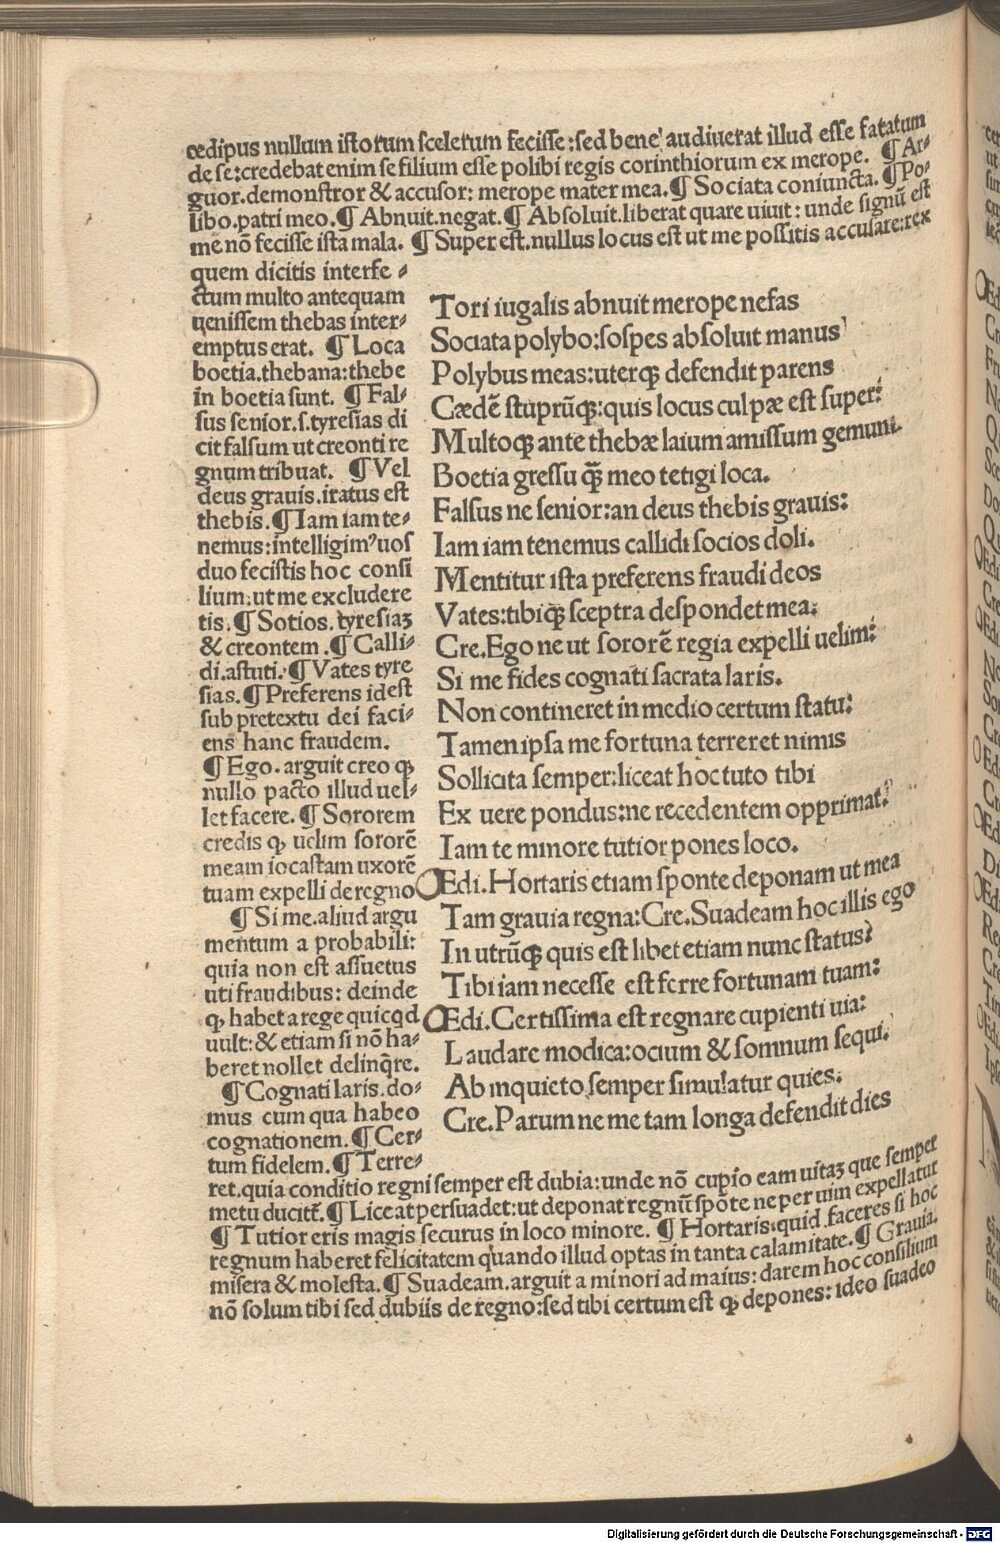 œdipus nullum istorum scelerum fecisse:sed bene audiuerat illud esse fatatum
de se:credebat enim se filium esse polibi regis corinthiorum ex merope. ¶ Ar⸗
guor.demonstror & accusor: merope mater mea.¶ Sociata coniuncta.¶ Po⸗
libo.patri meo.¶ Abnuit.negat.¶ Absoluit.liberat quare uiuit: unde signū est
me nō fecisse ista mala. ¶ Super est.nullus locus est ut me possitis accusare:rex
quem dicitis interfe⸗
ctum multo antequam
uenissem thebas inter⸗
emptus erat. ¶ Loca
boetia.thebana:thebe
in boetia sunt. ¶ Fal⸗
sus senior.s.tyresias di
cit falsum ut creonti re
gnum tribuat. ¶ Vel
deus grauis.iratus est
thebis.¶ Iam iam te⸗
nemus:intelligimꝰ uos
duo fecistis hoc consi
lium:ut me excludere
tis.¶ Sotios.tyresiaꝫ
& creontem.¶ Calli⸗
di.astuti.¶ Vates tyre
sias.¶ Preferens idest
sub pretextu dei faci⸗
ens hanc fraudem.
¶ Ego.arguit creo ꝙ
nullo pacto illud uel⸗
let facere.¶ Sororem
credis ꝙ uelim sororē
meam iocastam uxorē
tuam expelli de regno
¶ Si me.aliud argu
mentum a probabili:
quia non est assuetus
uti fraudibus: deinde
ꝙ habet a rege quicqd
uult:& etiam si nō ha⸗
beret nollet delinq̄re.
¶ Cognati laris.do⸗
mus cum qua habeo
cognationem.¶ Cer⸗
tum fidelem.¶ Terre⸗
Tori iugalis abnuit merope nefas
Sociata polybo:sospes absoluit manus
Polybus meas:uterqꝫ defendit parens
Cædē stuprūqꝫ:quis locus culpæ est super?
Multoqꝫ ante thebæ laium amissum gemunt
Boetia gressu q̄ꝫ meo tetigi loca.
Falsus ne senior:an deus thebis grauis?
Iam iam tenemus callidi socios doli.
Mentitur ista preferens fraudi deos
Vates:tibiqꝫ sceptra despondet mea:
Cre.Ego ne ut sororē regia expelli uelim?
Si me fides cognati sacrata laris.
Non contineret in medio certum statu:
Tamen ipsa me fortuna terreret nimis
Sollicita semper:liceat hoc tuto tibi
Ex uere pondus:ne recedentem opprimat:
Iam te minore tutior pones loco.
Œdi.Hortaris etiam sponte deponam ut mea
Tam grauia regna:Cre.Suadeam hoc illis ego
In utrūqꝫ quis est libet etiam nunc status?
Tibi iam necesse est ferre fortunam tuam:
Œdi.Certissima est regnare cupienti uia:
Laudare modica:ocium & somnum sequi.
Ab inquieto semper simulatur quies.
Cre.Parum ne me tam longa defendit dies
ret.quia conditio regni semper est dubia:unde nō cupio eam uitaꝫ que semper
metu ducit̄.¶ Liceat persuadet:ut deponat regnū spōte ne per uim expellatur
¶ Tutior eris magis securus in loco minore. ¶ Hortaris:quid faceres si hoc
regnum haberet felicitatem quando illud optas in tanta calamitate.¶ Grauia.
misera & molesta.¶ Suadeam.arguit a minori ad maius: darem hoc consilium
nō solum tibi sed dubiis de regno:sed tibi certum est ꝙ depones: ideo suadeo
Digitalisierung gefördert durch die Deutsche Forschungsgemeinschaft - DFG